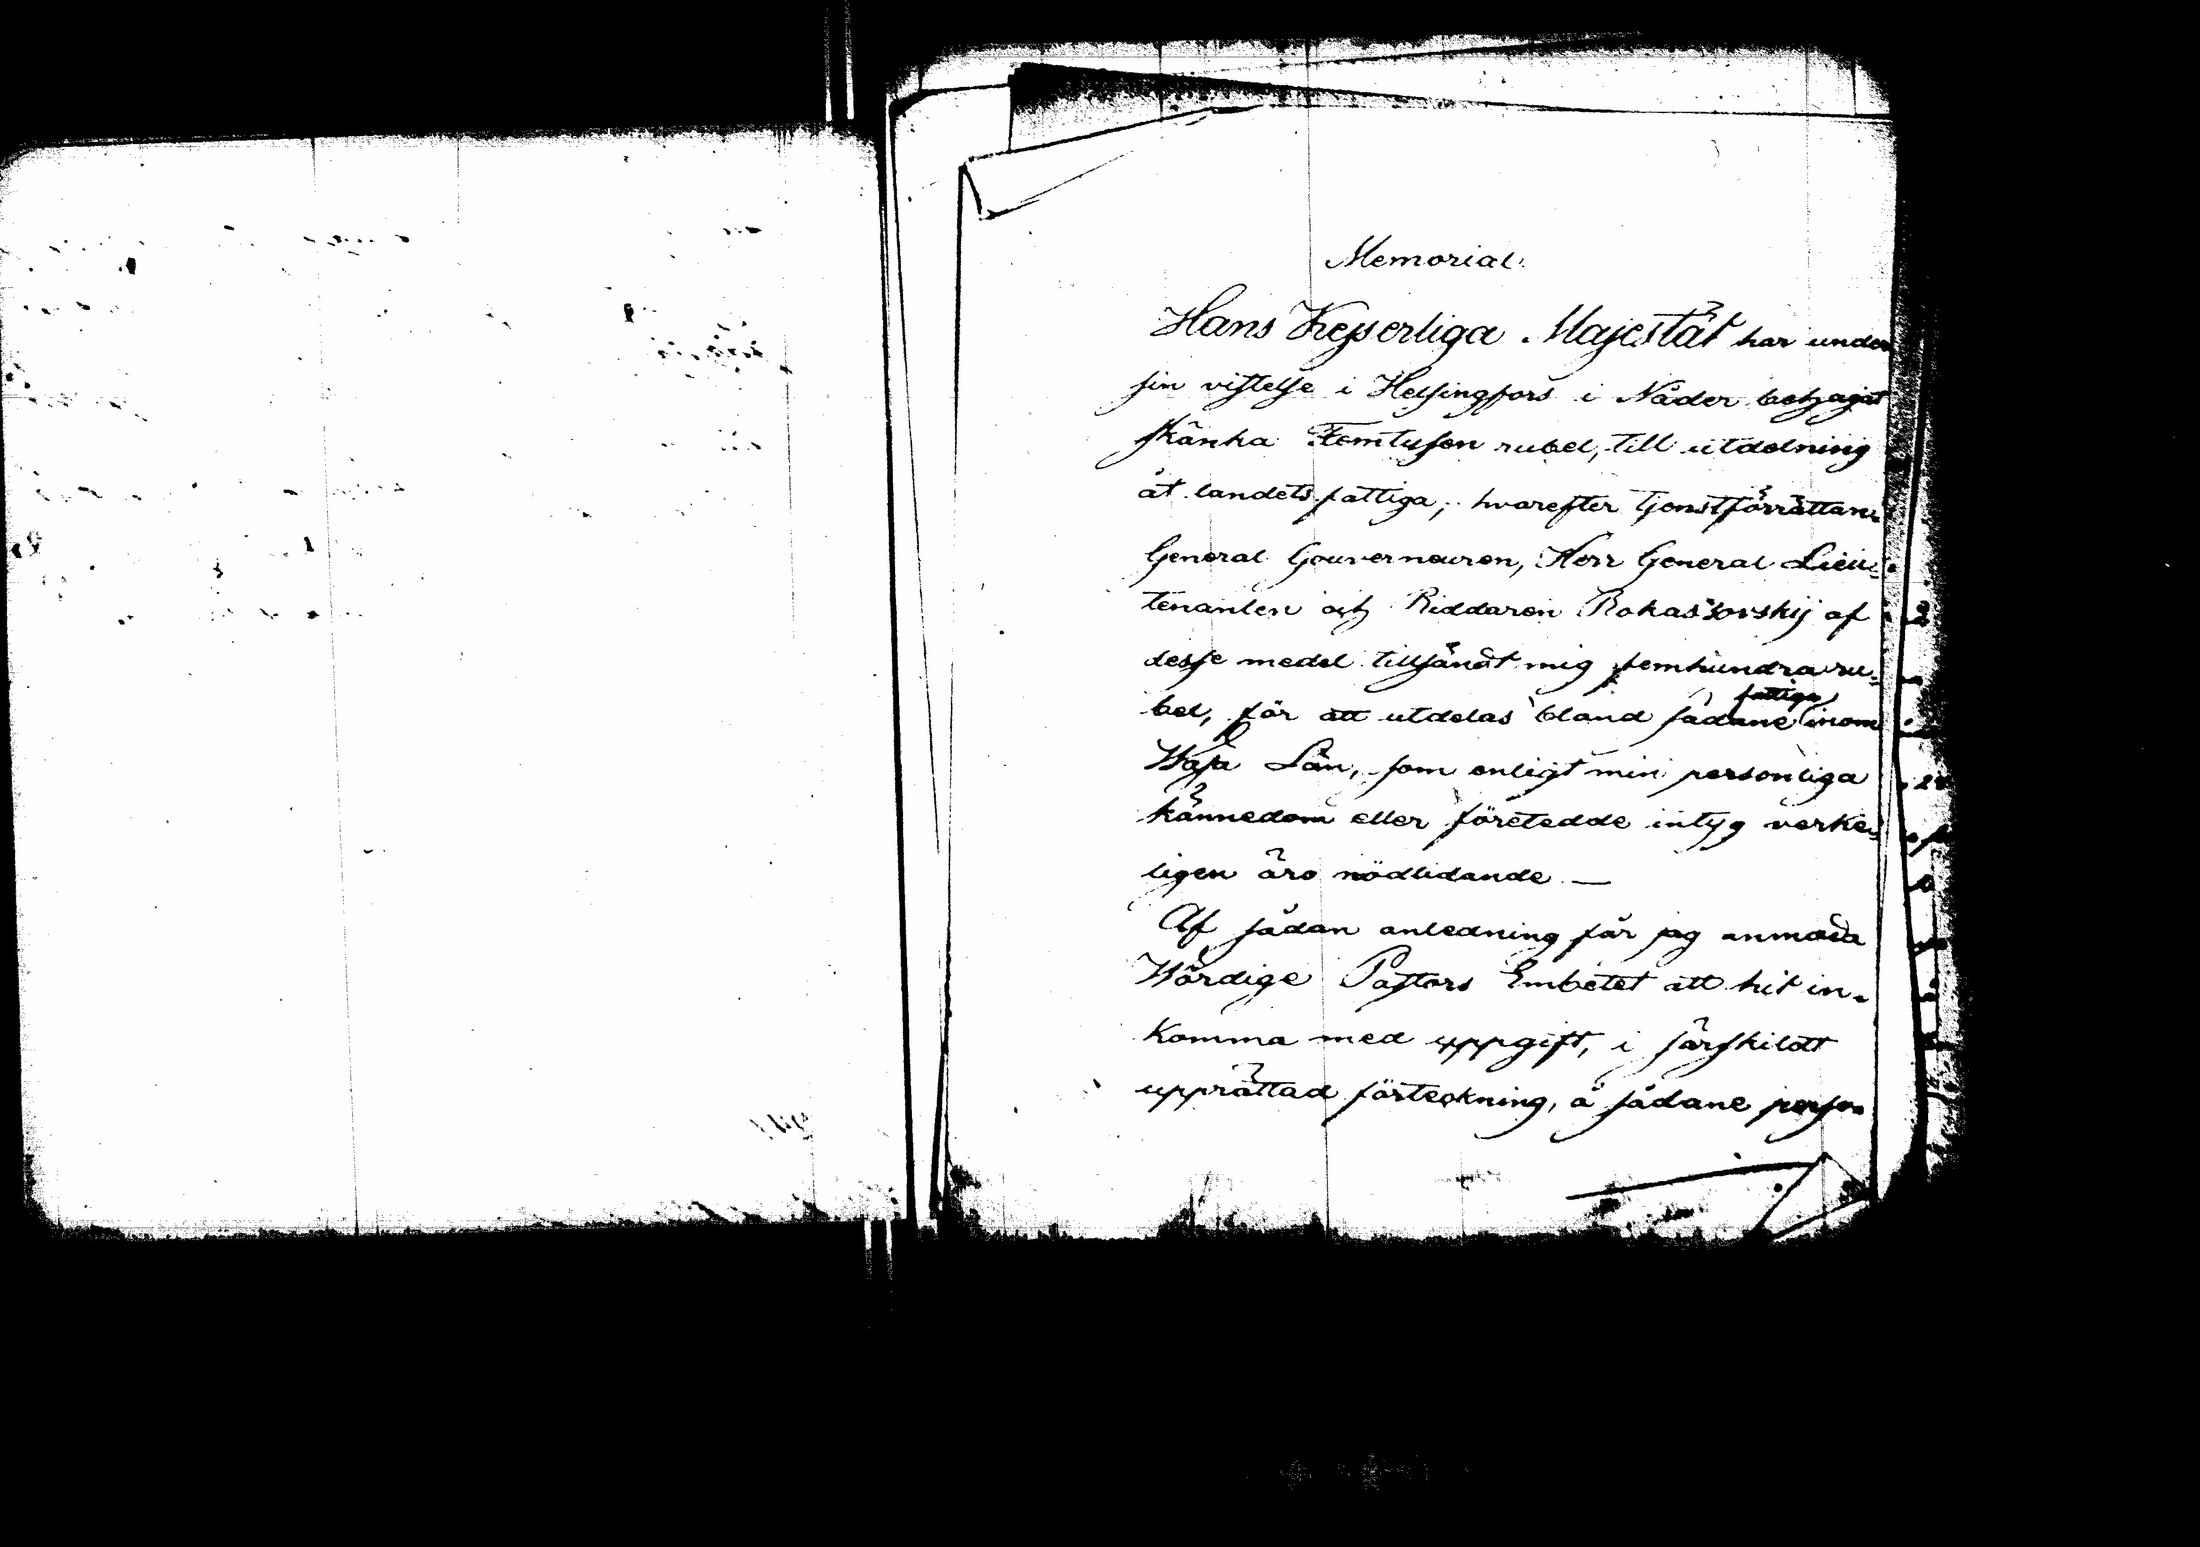 Memorial.
Hans Kejserliga Majestät har under
sin vistelse i Helsingfors i Nåder behagat
skänka Femtusen rubel, till utdelning
åt landets fattiga; hvarefter tjenstförrättan-
General Gouverneuren, Herr General Lieu-
tenanten och Riddaren Rokassovskij af
desse medel tillsändt mig femhundra ru-
fattiga
bel, för att utdelas bland sådane inom
Wasa Län, som enligt min personliga
kännedom eller företedde intyg verke-
ligen äro nödlidande. —
Af sådan anledning får jag anmoda
Wördige Pastors Embetet att hit in-
komma med uppgift, i särskildt
upprättad förteckning, å sådane perso-